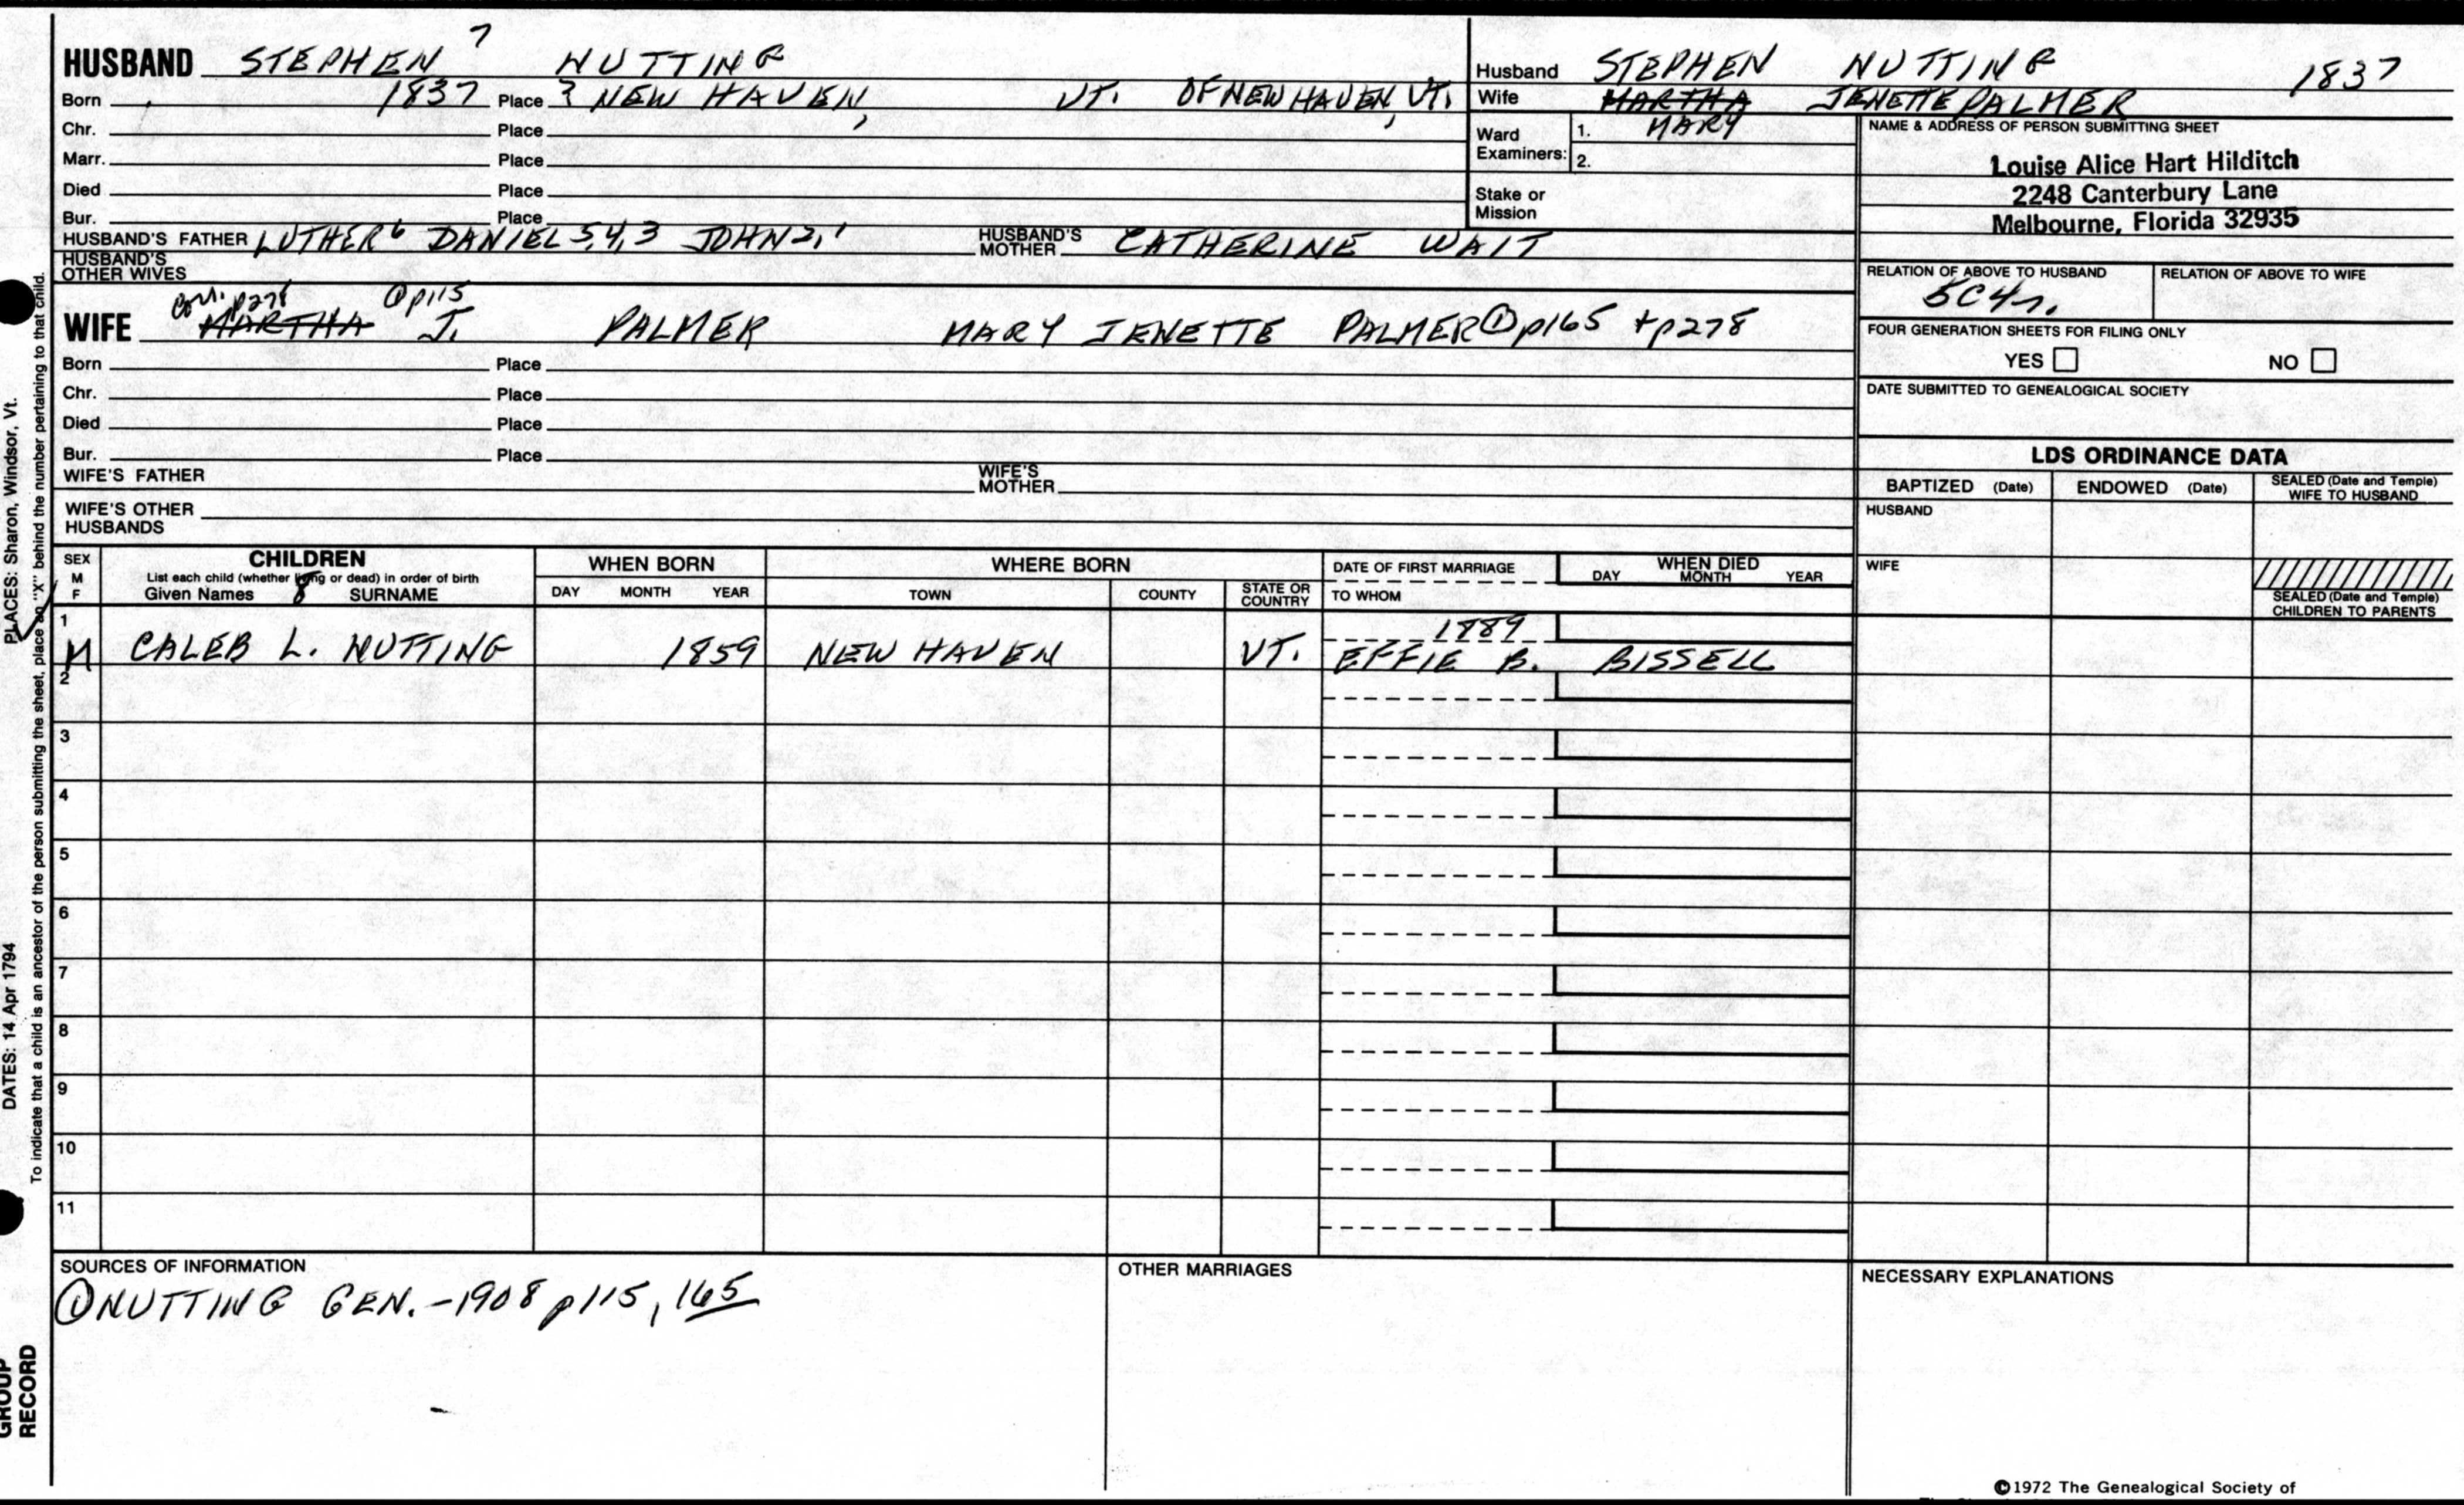 HUSBAND STEPHEN 7 NUTTING
Born 1837 Place ? NEW HAVEN, VT. OF NEW HAVEN, VT.
Chr. Place
Marr. Place
Died Place
Bur. Place
HUSBAND'S FATHER LUTHER 6 DANIEL 5,4,3 JOHN 2,1 HUSBAND'S MOTHER CATHERINE WAIT
HUSBAND'S OTHER WIVES
p278 ① p115
WIFE MARTHA J. PALMER MARY JENETTE PALMER ① p165 + p278
Born Place
Chr. Place
Died Place
Bur. Place
WIFE'S FATHER WIFE'S MOTHER
WIFE'S OTHER HUSBANDS
Husband STEPHEN NUTTING 1837
Wife MARTHA JENETTE PALMER
MARY
Ward Examiners: 1.
2.
Stake or Mission
NAME & ADDRESS OF PERSON SUBMITTING SHEET
Louise Alice Hart Hilditch
2248 Canterbury Lane
Melbourne, Florida 32935
RELATION OF ABOVE TO HUSBAND RELATION OF ABOVE TO WIFE
5C4r.
FOUR GENERATION SHEETS FOR FILING ONLY
YES NO
DATE SUBMITTED TO GENEALOGICAL SOCIETY
LDS ORDINANCE DATA
BAPTIZED (Date) ENDOWED (Date) SEALED (Date and Temple) WIFE TO HUSBAND
HUSBAND
WIFE
SEALED (Date and Temple) CHILDREN TO PARENTS
SEX M F
CHILDREN
List each child (whether living or dead) in order of birth
Given Names 8 SURNAME
WHEN BORN
DAY MONTH YEAR
WHERE BORN
TOWN COUNTY STATE OR COUNTRY
DATE OF FIRST MARRIAGE
TO WHOM
WHEN DIED
DAY MONTH YEAR
1 1889
M CALEB L. NUTTING 1859 NEW HAVEN VT. EFFIE B. BISSELL
2
3
4
5
6
7
8
9
10
11
SOURCES OF INFORMATION
① NUTTING GEN. - 1908 p115, 165
OTHER MARRIAGES
NECESSARY EXPLANATIONS
©1972 The Genealogical Society of
PLACES: Sharon, Windsor, Vt.
DATES: 14 Apr 1794
To indicate that a child is an ancestor of the person submitting the sheet, place an "X" behind the number pertaining to that child.
GROUP
RECORD